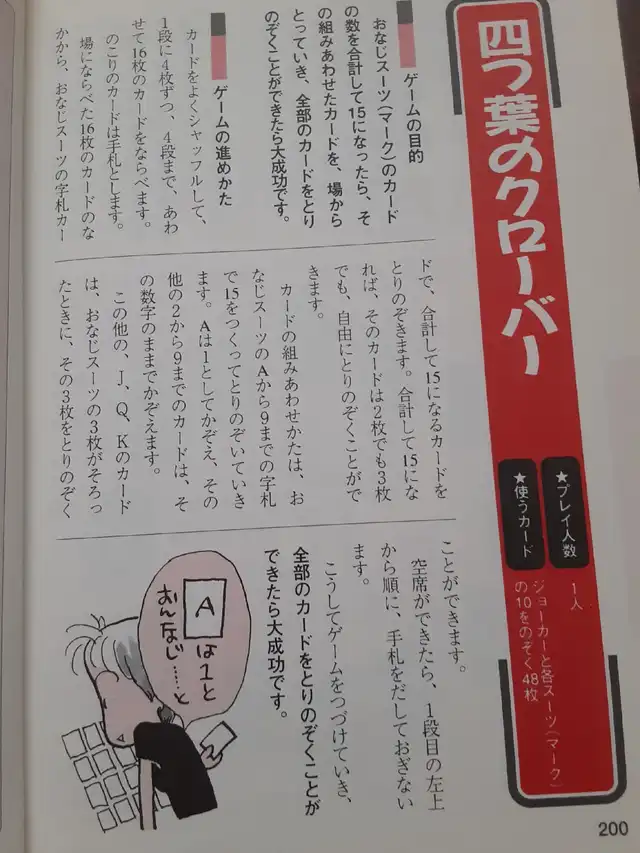 四つ葉のクローバー
★プレイ人数
1人
★使うカード
ジョーカーと各スーツ(マーク)
の10をのぞく48枚
ゲームの目的
おなじスーツ(マーク)のカード
の数を合計して15になったら、そ
の組みあわせたカードを、場から
とっていき、全部のカードをとり
のぞくことができたら大成功です。
ゲームの進めかた
カードをよくシャッフルして、
1段に4枚ずつ、4段まで、あわ
せて16枚のカードをならべます。
のこりのカードは手札とします。
場にならべた16枚のカードのな
かから、おなじスーツの字札カー
ドで、合計して15になるカードを
とりのぞきます。合計して15にな
れば、そのカードは2枚でも3枚
でも、自由にとりのぞくことがで
きます。
カードの組みあわせかたは、お
なじスーツのAから9までの字札
で15をつくってとりのぞいていき
ます。Aは1としてかぞえ、その
他の2から9までのカードは、そ
の数字のままでかぞえます。
この他の、J、Q、Kのカード
は、おなじスーツの3枚がそろっ
たときに、その3枚をとりのぞく
ことができます。
空席ができたら、1段目の左上
から順に、手札をだしておぎない
ます。
こうしてゲームをつづけていき、
全部のカードをとりのぞくことが
できたら大成功です。
A
は1と
おんなじ……と
200